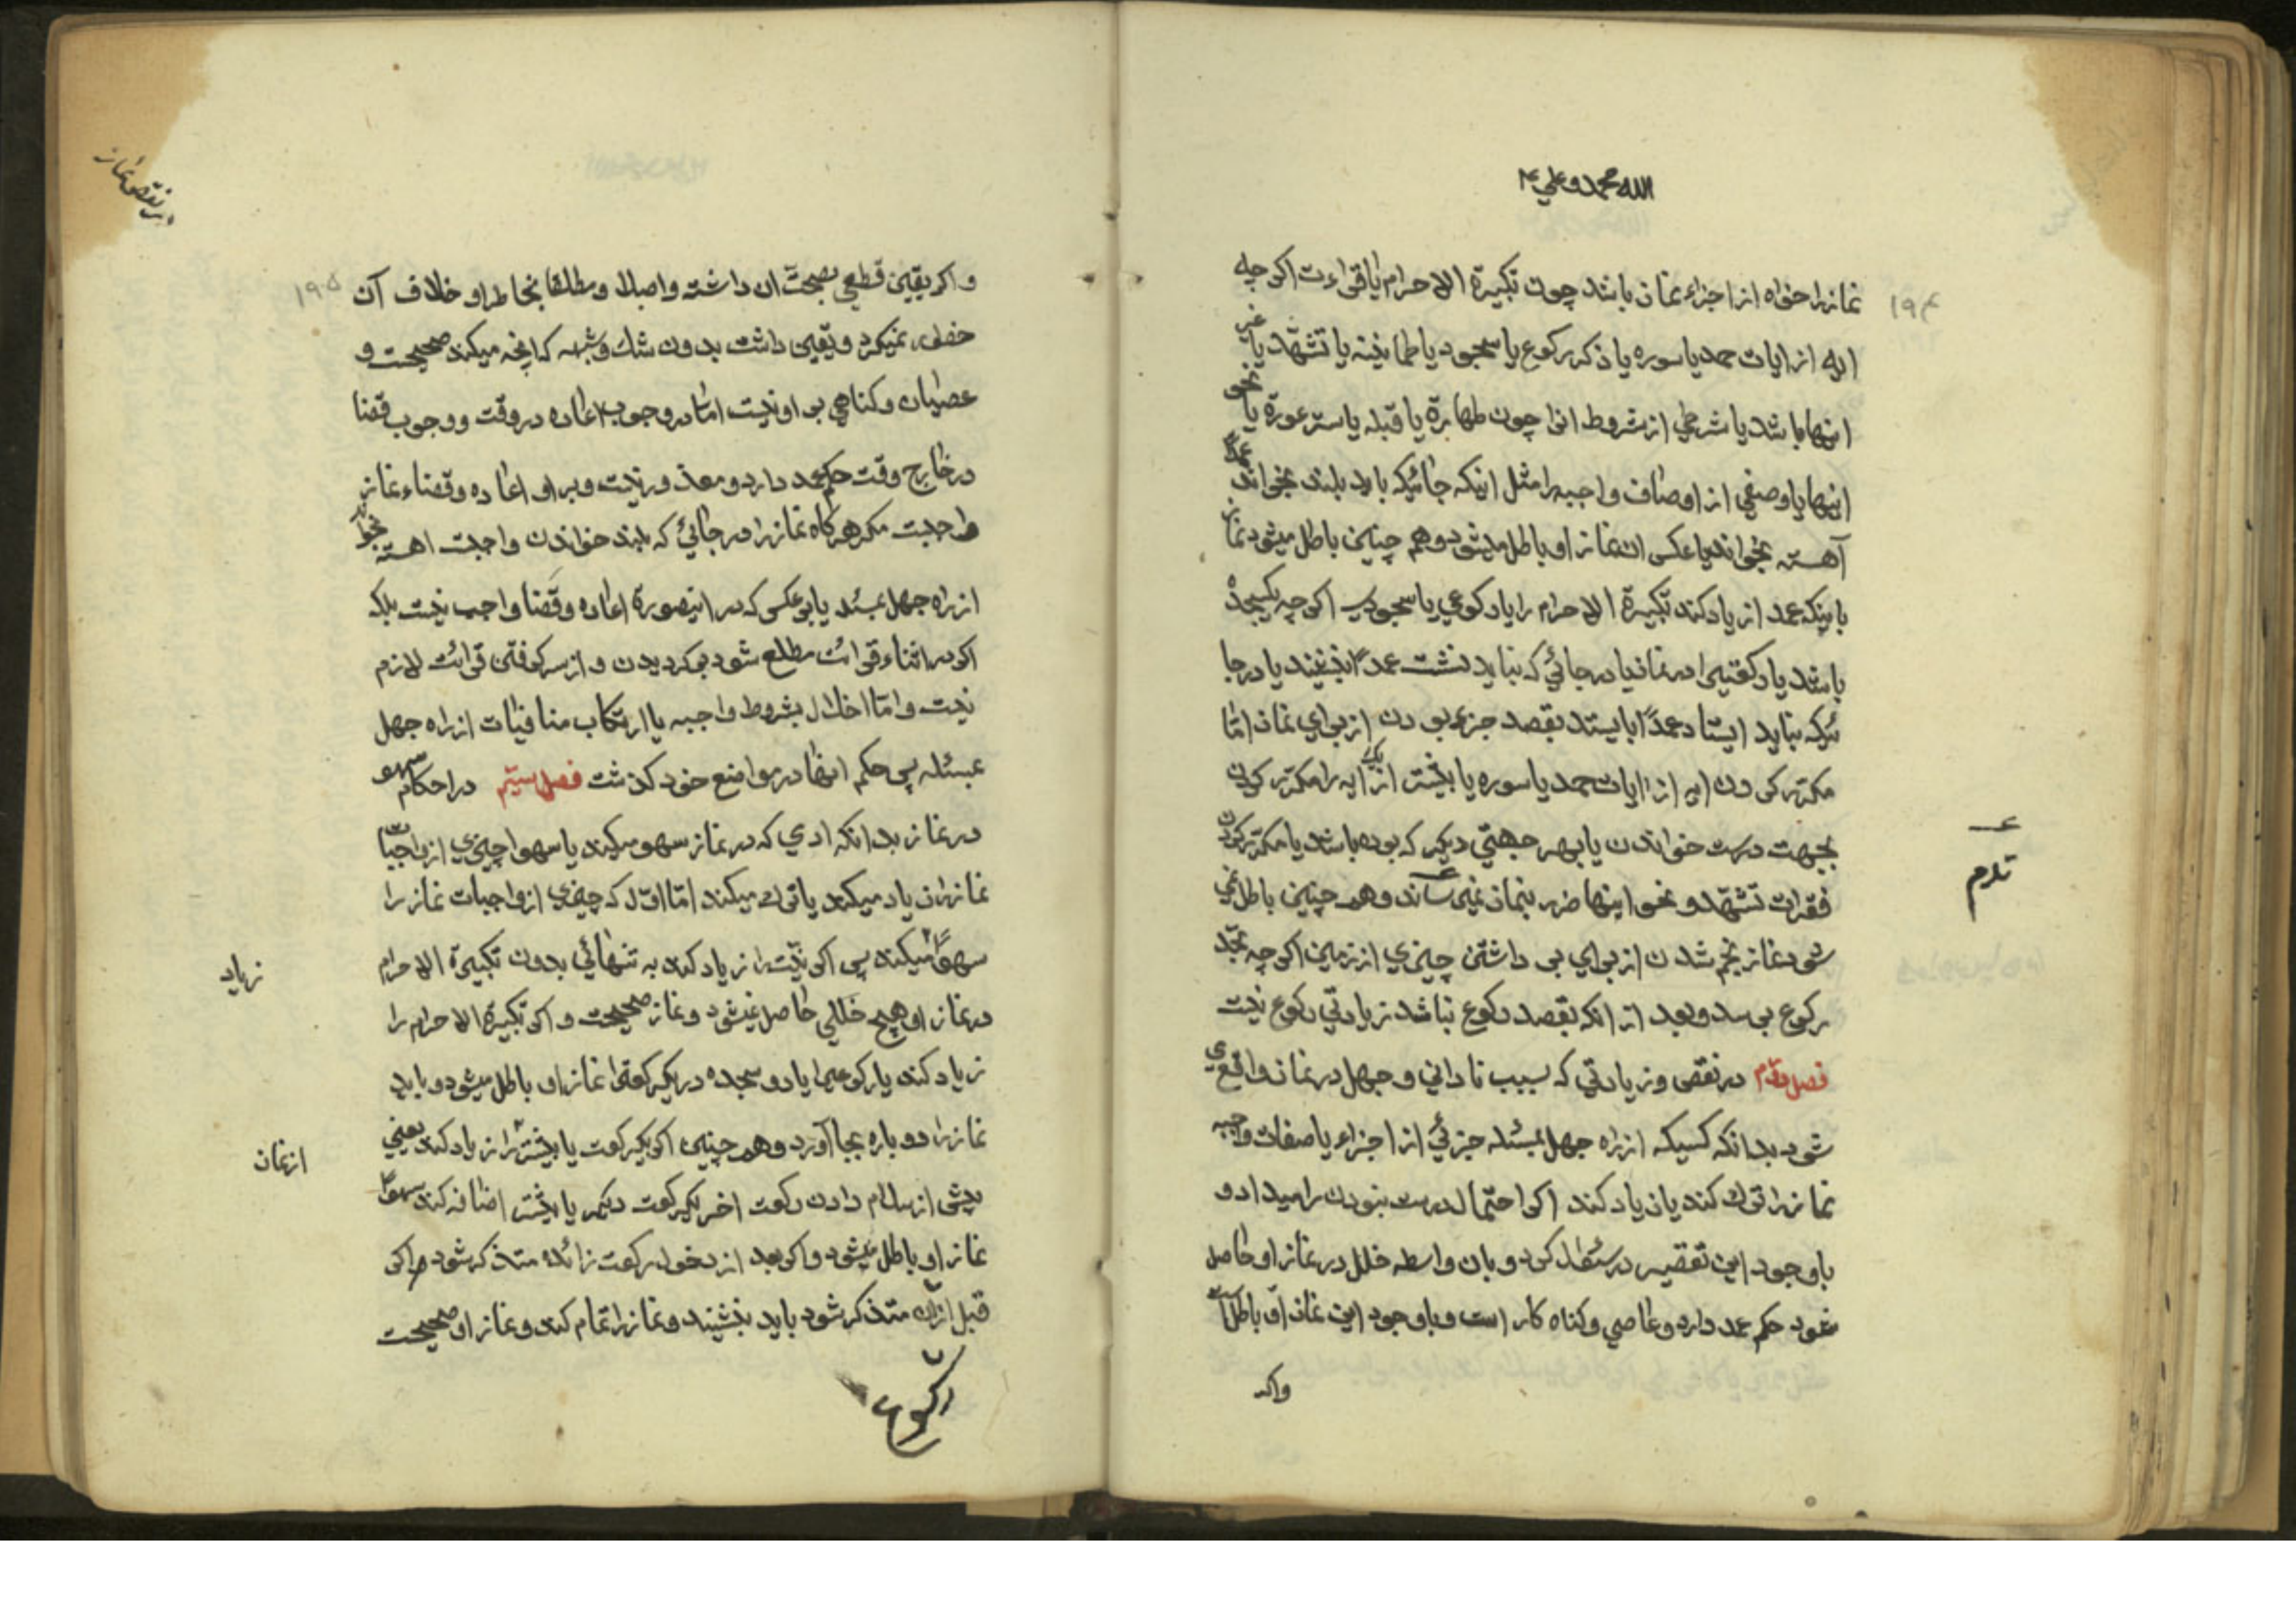 الله محمد و علی ۴
۱۹۴
نماز را خواه از اجزاء نماز باشد چون تکبیرة الاحرام یا قراءت اکر چه
ایه از ایات حمد یا سوره یا ذکر رکوع یا سجود یا طمانینه یا تشهّد یا غیر
اینها باشد یا شرطی از شروط انرا چون طهارة یا قبله یا ستر عورة یا نحو
اینها یا وصفی از اوصاف واجبه را مثل اینکه جائیکه باید بلند بخواند عمدًا
آهسته بخواند یا عکس ان نماز او باطل میشود و هم چنین باطل میشود نماز
باینکه عمدا زیاد کند تکبیرة الاحرام را یا رکوعی یا سجودی اکر چه یکسجده
باشد یا رکعتیرا در نماز یا در جائی که نباید نشست عمدًا بنشیند یا در جا
ئیکه نباید ایستاد عمدًا بایستد بقصد جزء بودن از برای نماز امّا
مکرّر کردن ایه از ایات حمد یا سوره یا بیشتر از یک ایه را مکرّر کردن
بجهت درست خواندن یا بهر جهتی دیکر که بوده باشد یا مکرّر کردن
فقرات تشهّد و نحو اینها ضرر بنماز نمی رساند و هم چنین باطل نمی
شود نماز بخم شدن از برای بر داشتن چیزی از زمین اکر چه بحدّ
رکوع برسد و بعد از انکه بقصد رکوع نباشد زیادتی رکوع نیست
فصل دوّم در نقص و زیادتی که بسبب نادانی و جهل در نماز واقع ی
شود بدانکه کسیکه از راه جهل بمسئله جزئی از اجزاء یا صفات واجبه
نماز را ترک کند یا زیاد کند اکر احتمال درست نبودن را میداد و
باوجود این تقصیر در سئوال کرد و بان واسطه خلل در نماز او حاصل
شود حکم عمد دارد و عاصی و کناه کار است و باوجود این نماز او باطلست
واکر
در نقص نماز
۱۹۵
و اکر یقین قطعی بصحّت ان داشته و اصلا و مطلقا بخاطر او خلاف آن
خطور نمیکرد و یقین داشت بدون شک و شبهه که انچه میکند صحیحست و
عصیان و کناهی بر او نیست امّا در وجوب اعاده در وقت و وجوب قضا
در خارج وقت حکم عمد دارد و معذور نیست و بر او اعاده و قضاء نماز
واجبست مکر هر کاه نماز را در جائی که بلند خواندن واجبست اهسته بخواند
از راه جهل بمسئله یا بر عکس که در اینصورة اعاده و قضا واجب نیست بلکه
اکر در اثناء قرائت مطلع شود بر کردیدن و از سر کرفتن قرائت لازم
نیست و امّا اخلال بشروط واجبه یا ارتکاب منافیات از راه جهل
بمسئله پس حکم انها در مواضع خود کذشت فصل سیّم در احکام سهو
در نماز بدانکه ادمی که در نماز سهو میکند یا سهوا چیزی از واجبات
نماز را زیاد میکند یا ترک میکند امّا اوّل که چیزی از واجبات نماز را
سهوًا میکند پس اکر نیّت را زیاد کند به تنهائی بدون تکبیرة الاحرام
زیاد
در نماز او هیچ خللی حاصل نمیشود و نماز صحیحست و اکر تکبیرة الاحرام را
زیاد کند یا رکوعیرا یا دو سجده در یکرکعترا نماز او باطل میشود و باید
نماز را دو باره بجا آورد و هم چنین اکر یکرکعت یا بیشتر را زیاد کند یعنی
از نماز
پیش از سلام دادن رکعت اخر یکرکعت دیکر یا بیشتر اضافه کند سهوًا
نماز او باطل میشود و اکر بعد از دخول رکعت زائده متذکر شود و اکر
قبل از رکوع متذکر شود باید بنشیند و نماز را تمام کند و نماز او صحیحست